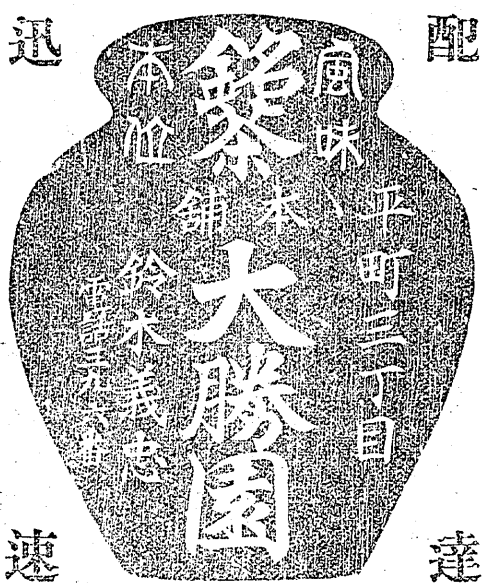 配達
迅速
風味
本位
平町三丁目
銘茶
本舗
大勝園
鈴木義忠
電話